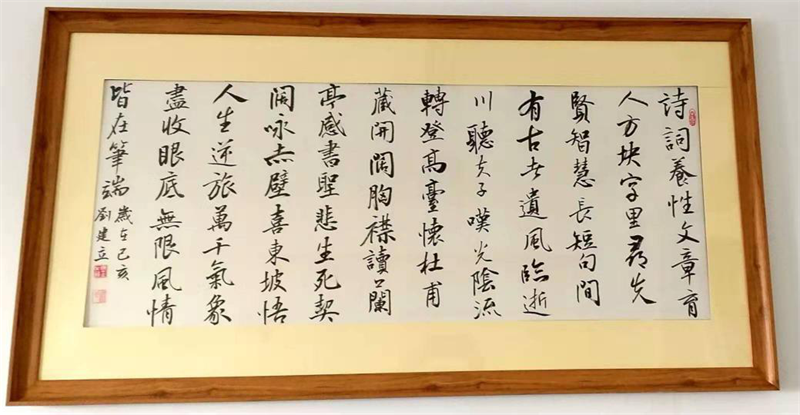 詩詞養性文章育
人方块字里尋先
賢智慧長短句間
有古老遺風臨逝
川聽夫子嘆光陰流
轉登高臺懷杜甫
藏開闊胸襟讀蘭
亭感書聖悲生死契
闊咏赤壁喜東坡悟
人生逆旅萬千氣象
盡收眼底無限風情
皆在筆端
歲在己亥
劉建立